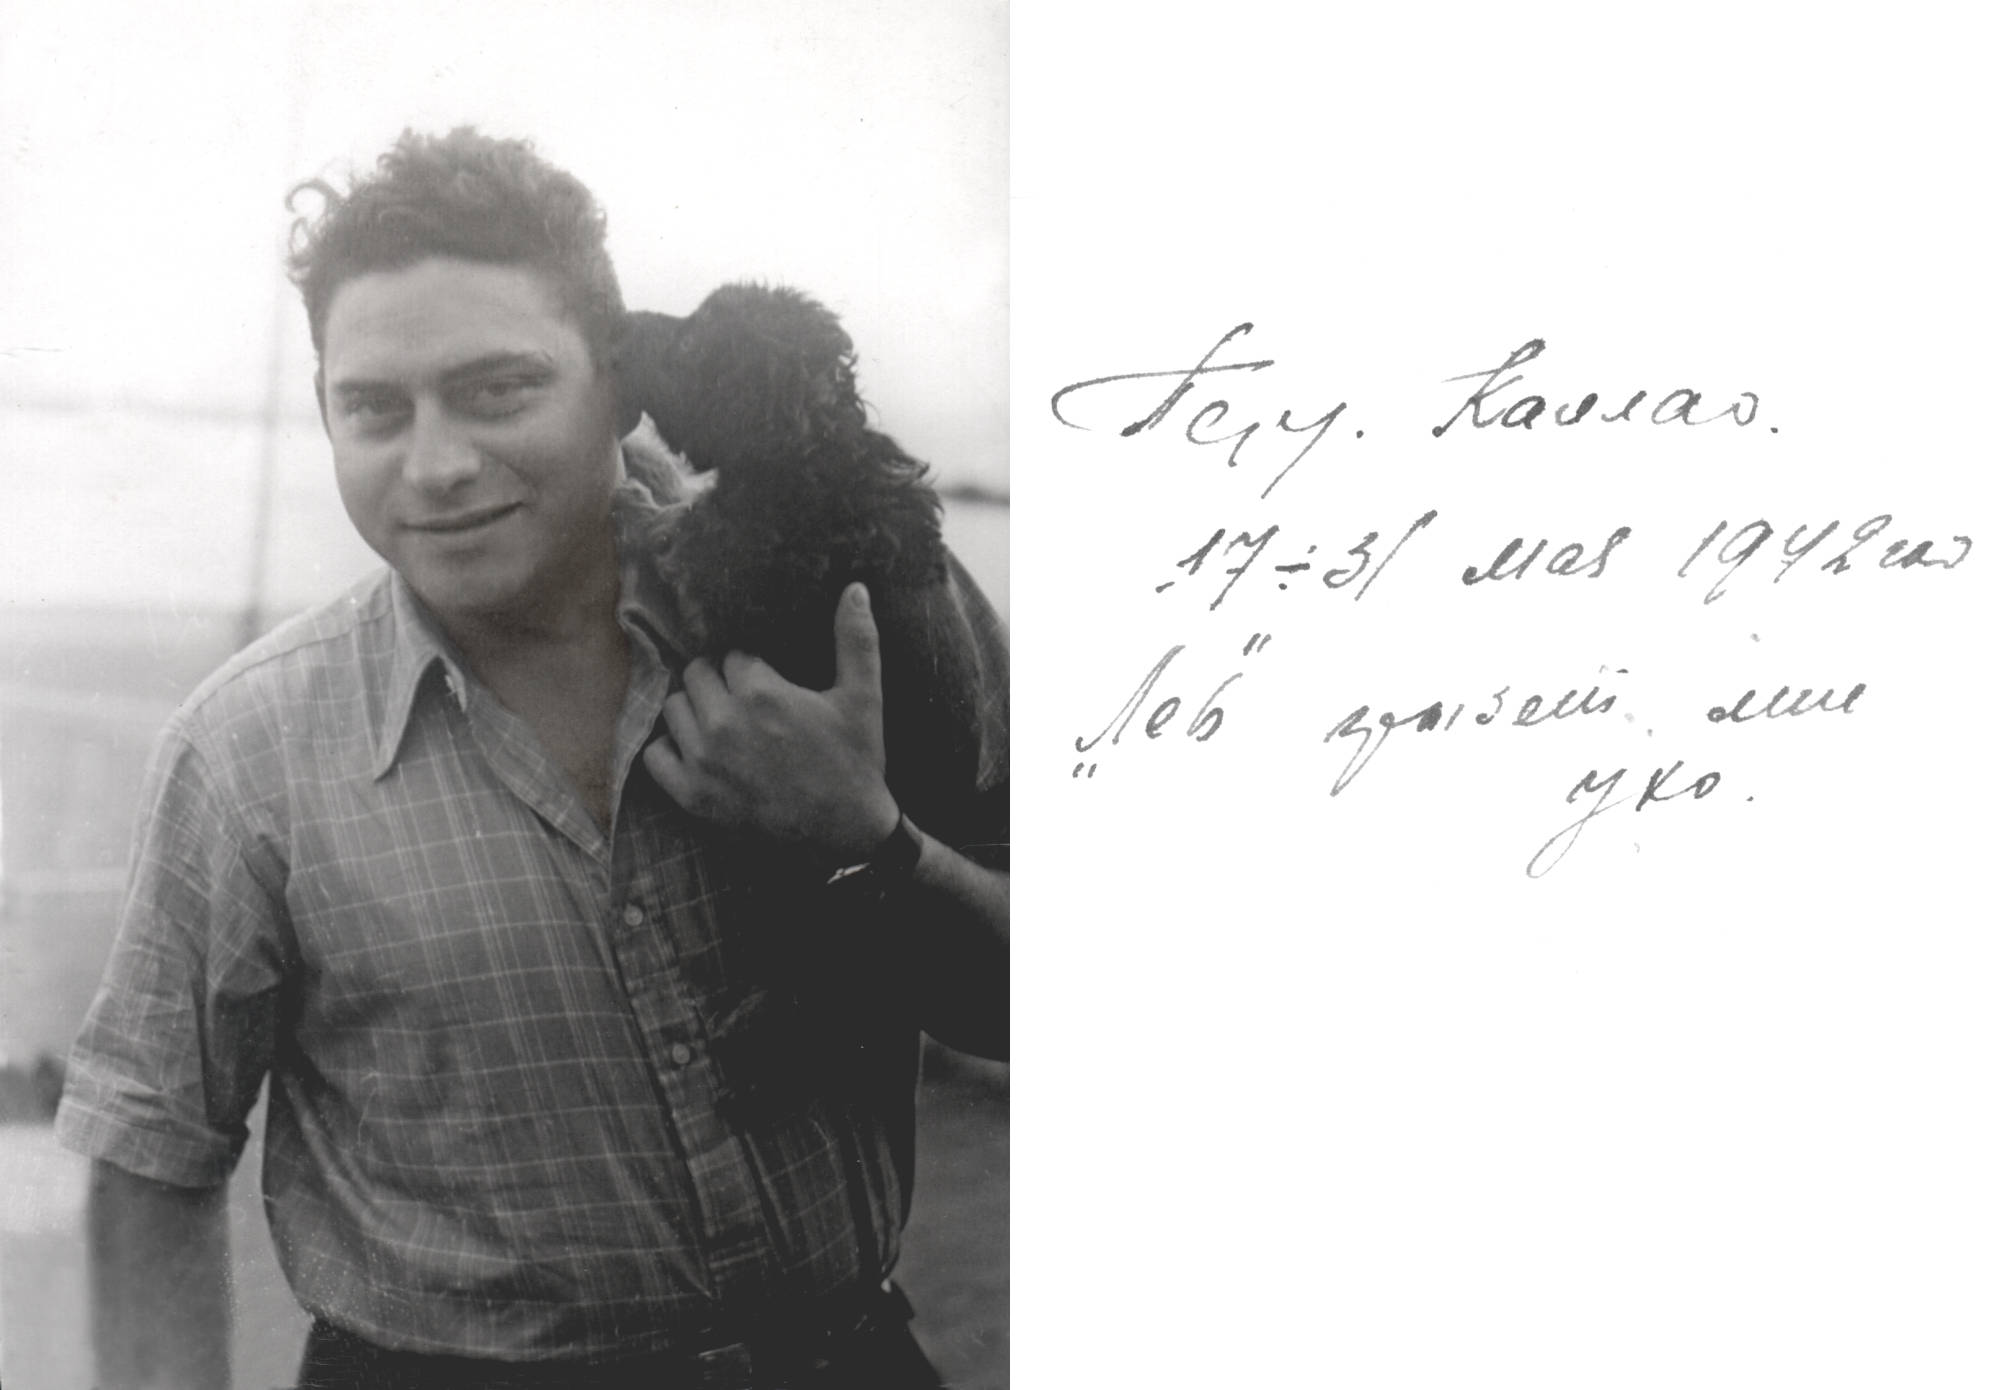 Перу. Каллао.
17÷31 мая 1942 го
"Лев" грызет мне
ухо.